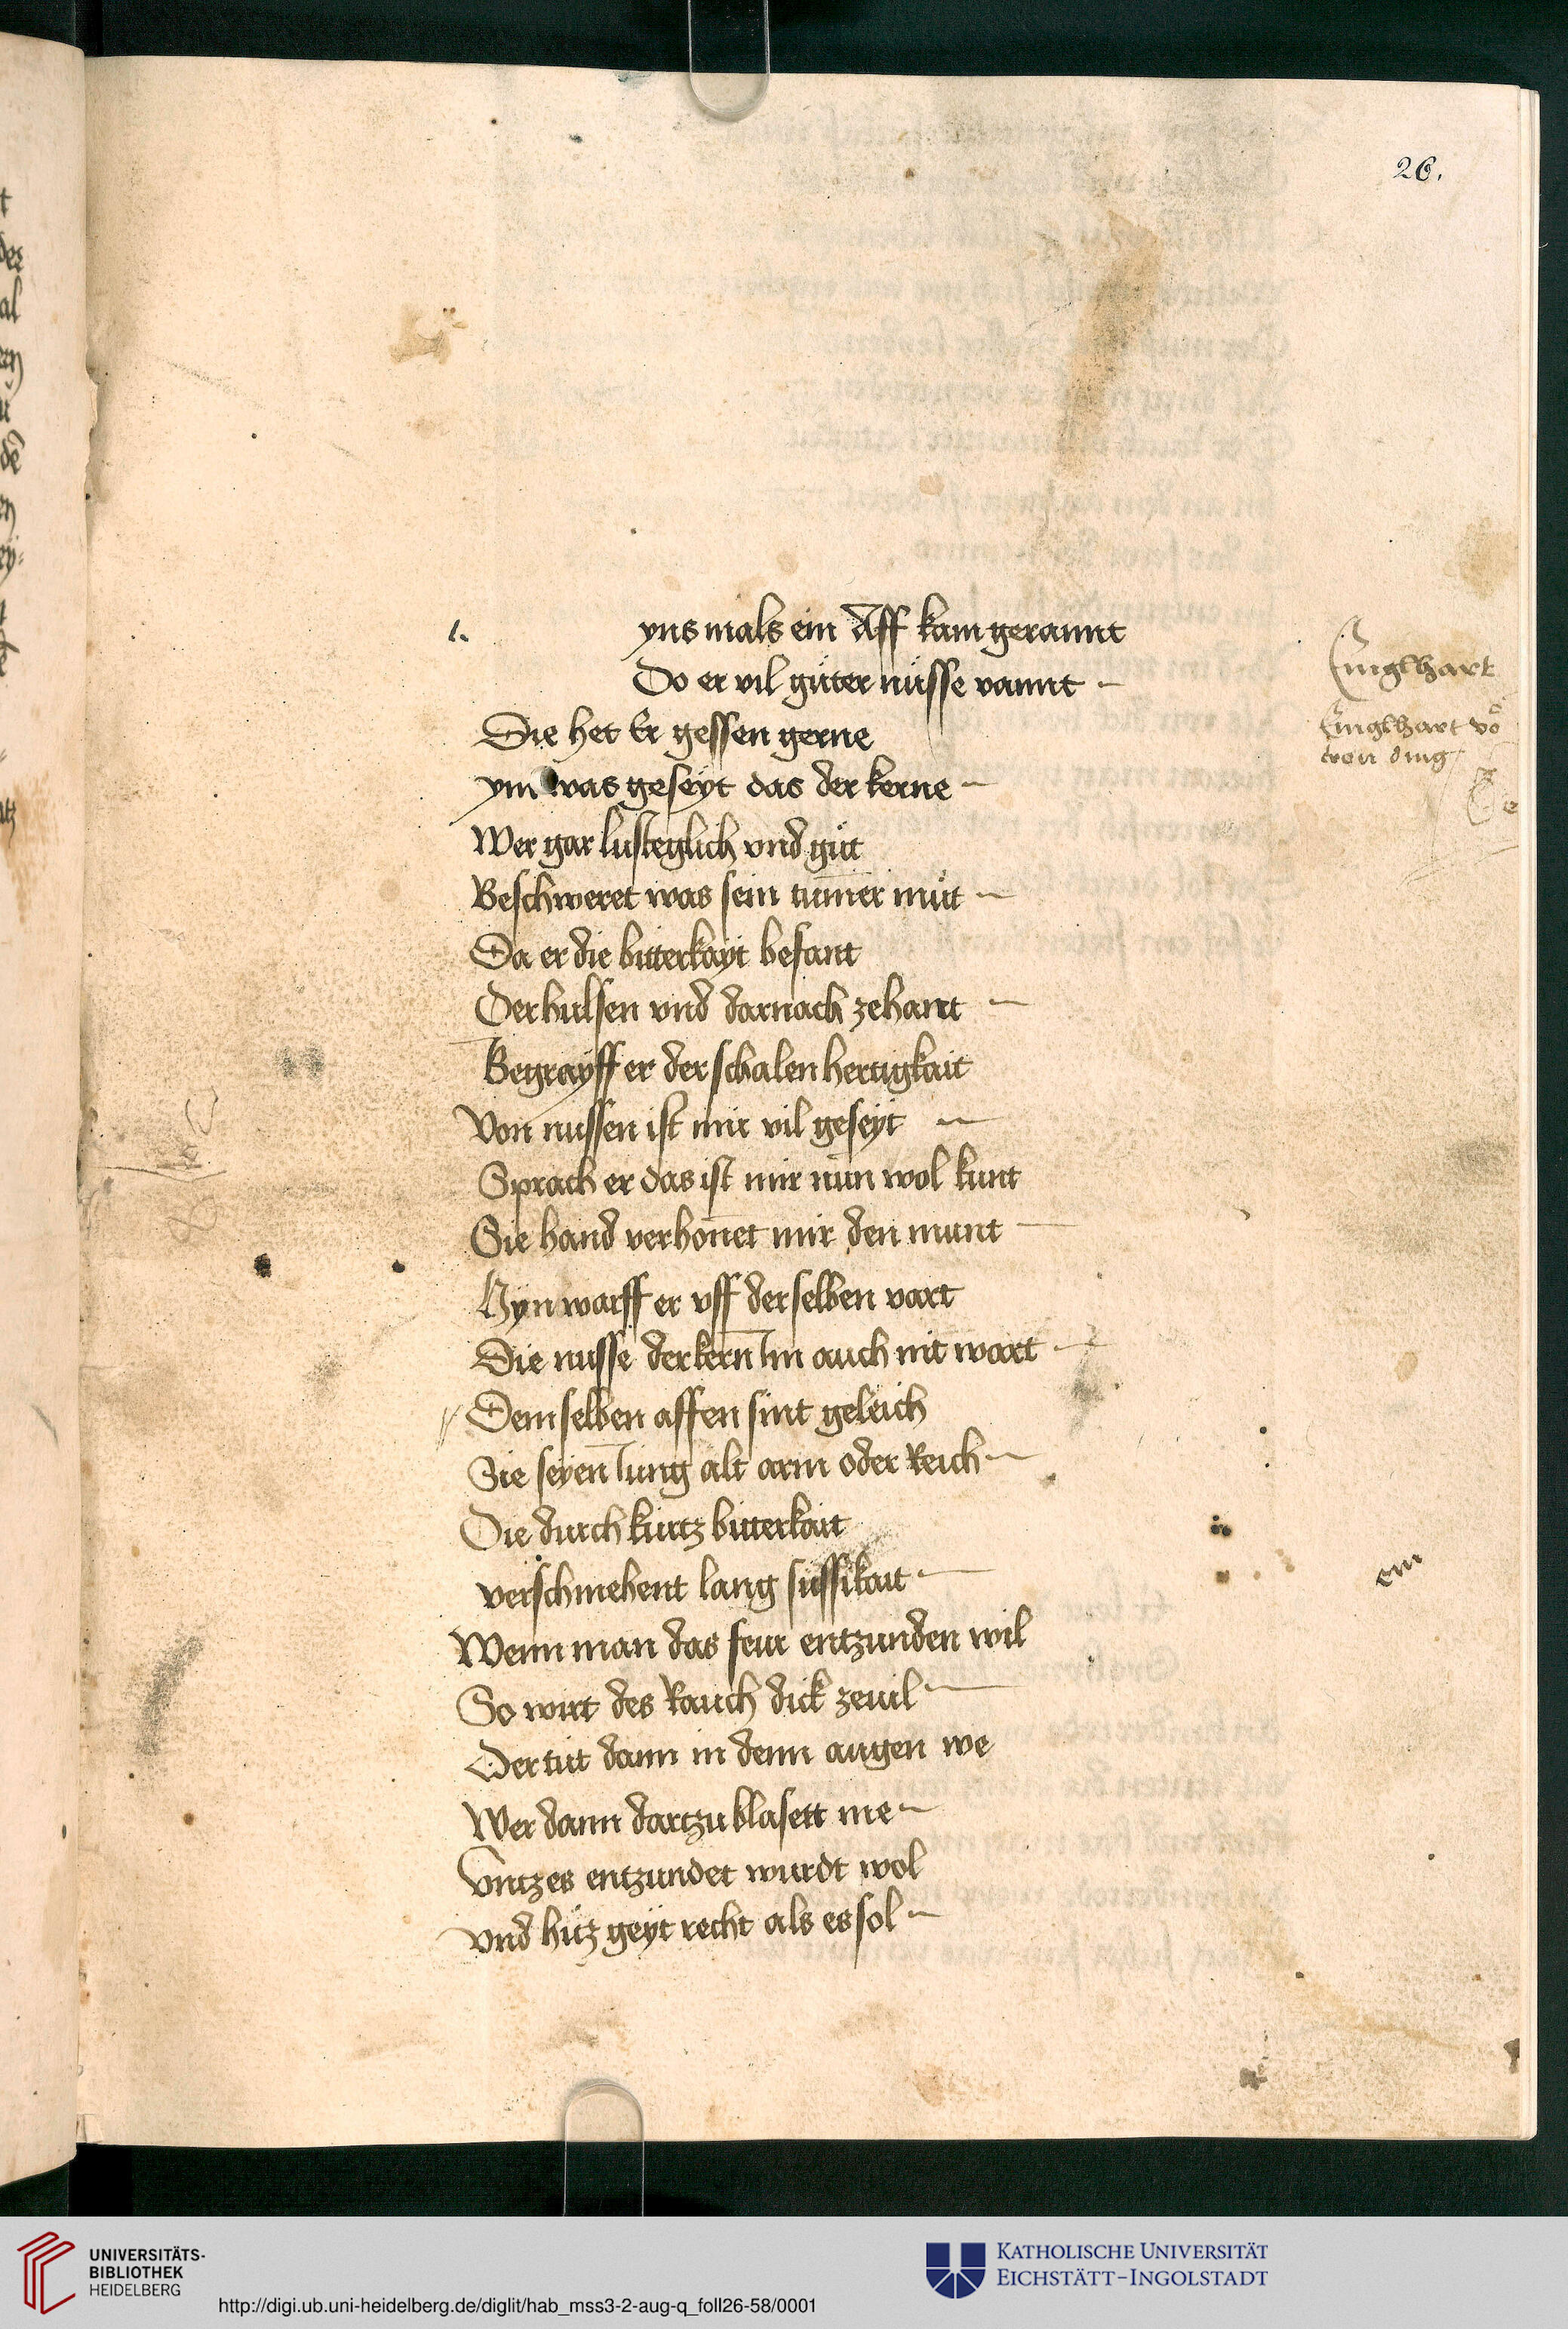 26.
1.
yns mals ein Aff kam gerannt
Do er vil guter nüsse vannt
Die het Er gessen gerne
ym was geseyt das der kerne
Wer gar lusteglich vnd gůt
Beschweret was sein tum̅er můt
Da er die bitterkayt befant
Der hulsen vnd darnach zehant
Begrayff er der schalen hertigkait
Von nussen ist mir vil geseyt
Sprach er das ist mir nun wol kunt
Sie hand verhon̅et mir den munt
Hyn warff er vff der selben vart
Die nusse der kern̅ Im auch nit wart
Dem selben affen sint geleich
Sie seyen̅ Iung alt arm oder Reich
Die durch kurtz bitterkait
verschmehent lang sussikait
Wenn man das feur entzunden wil
So wirt des Rauch dick zeuil
Der tut dann in denn augen we
Wer dann dartzu blasett me
Vntz es entzundet wurdt wol
vnd hitz geyt recht als es sol
Englhart
Englhart vō
ding
em
UNIVERSITÄTS-
BIBLIOTHEK
HEIDELBERG
http://digi.ub.uni-heidelberg.de/diglit/hab_mss3-2-aug-q_foll26-58/0001
KATHOLISCHE UNIVERSITÄT
EICHSTÄTT-INGOLSTADT